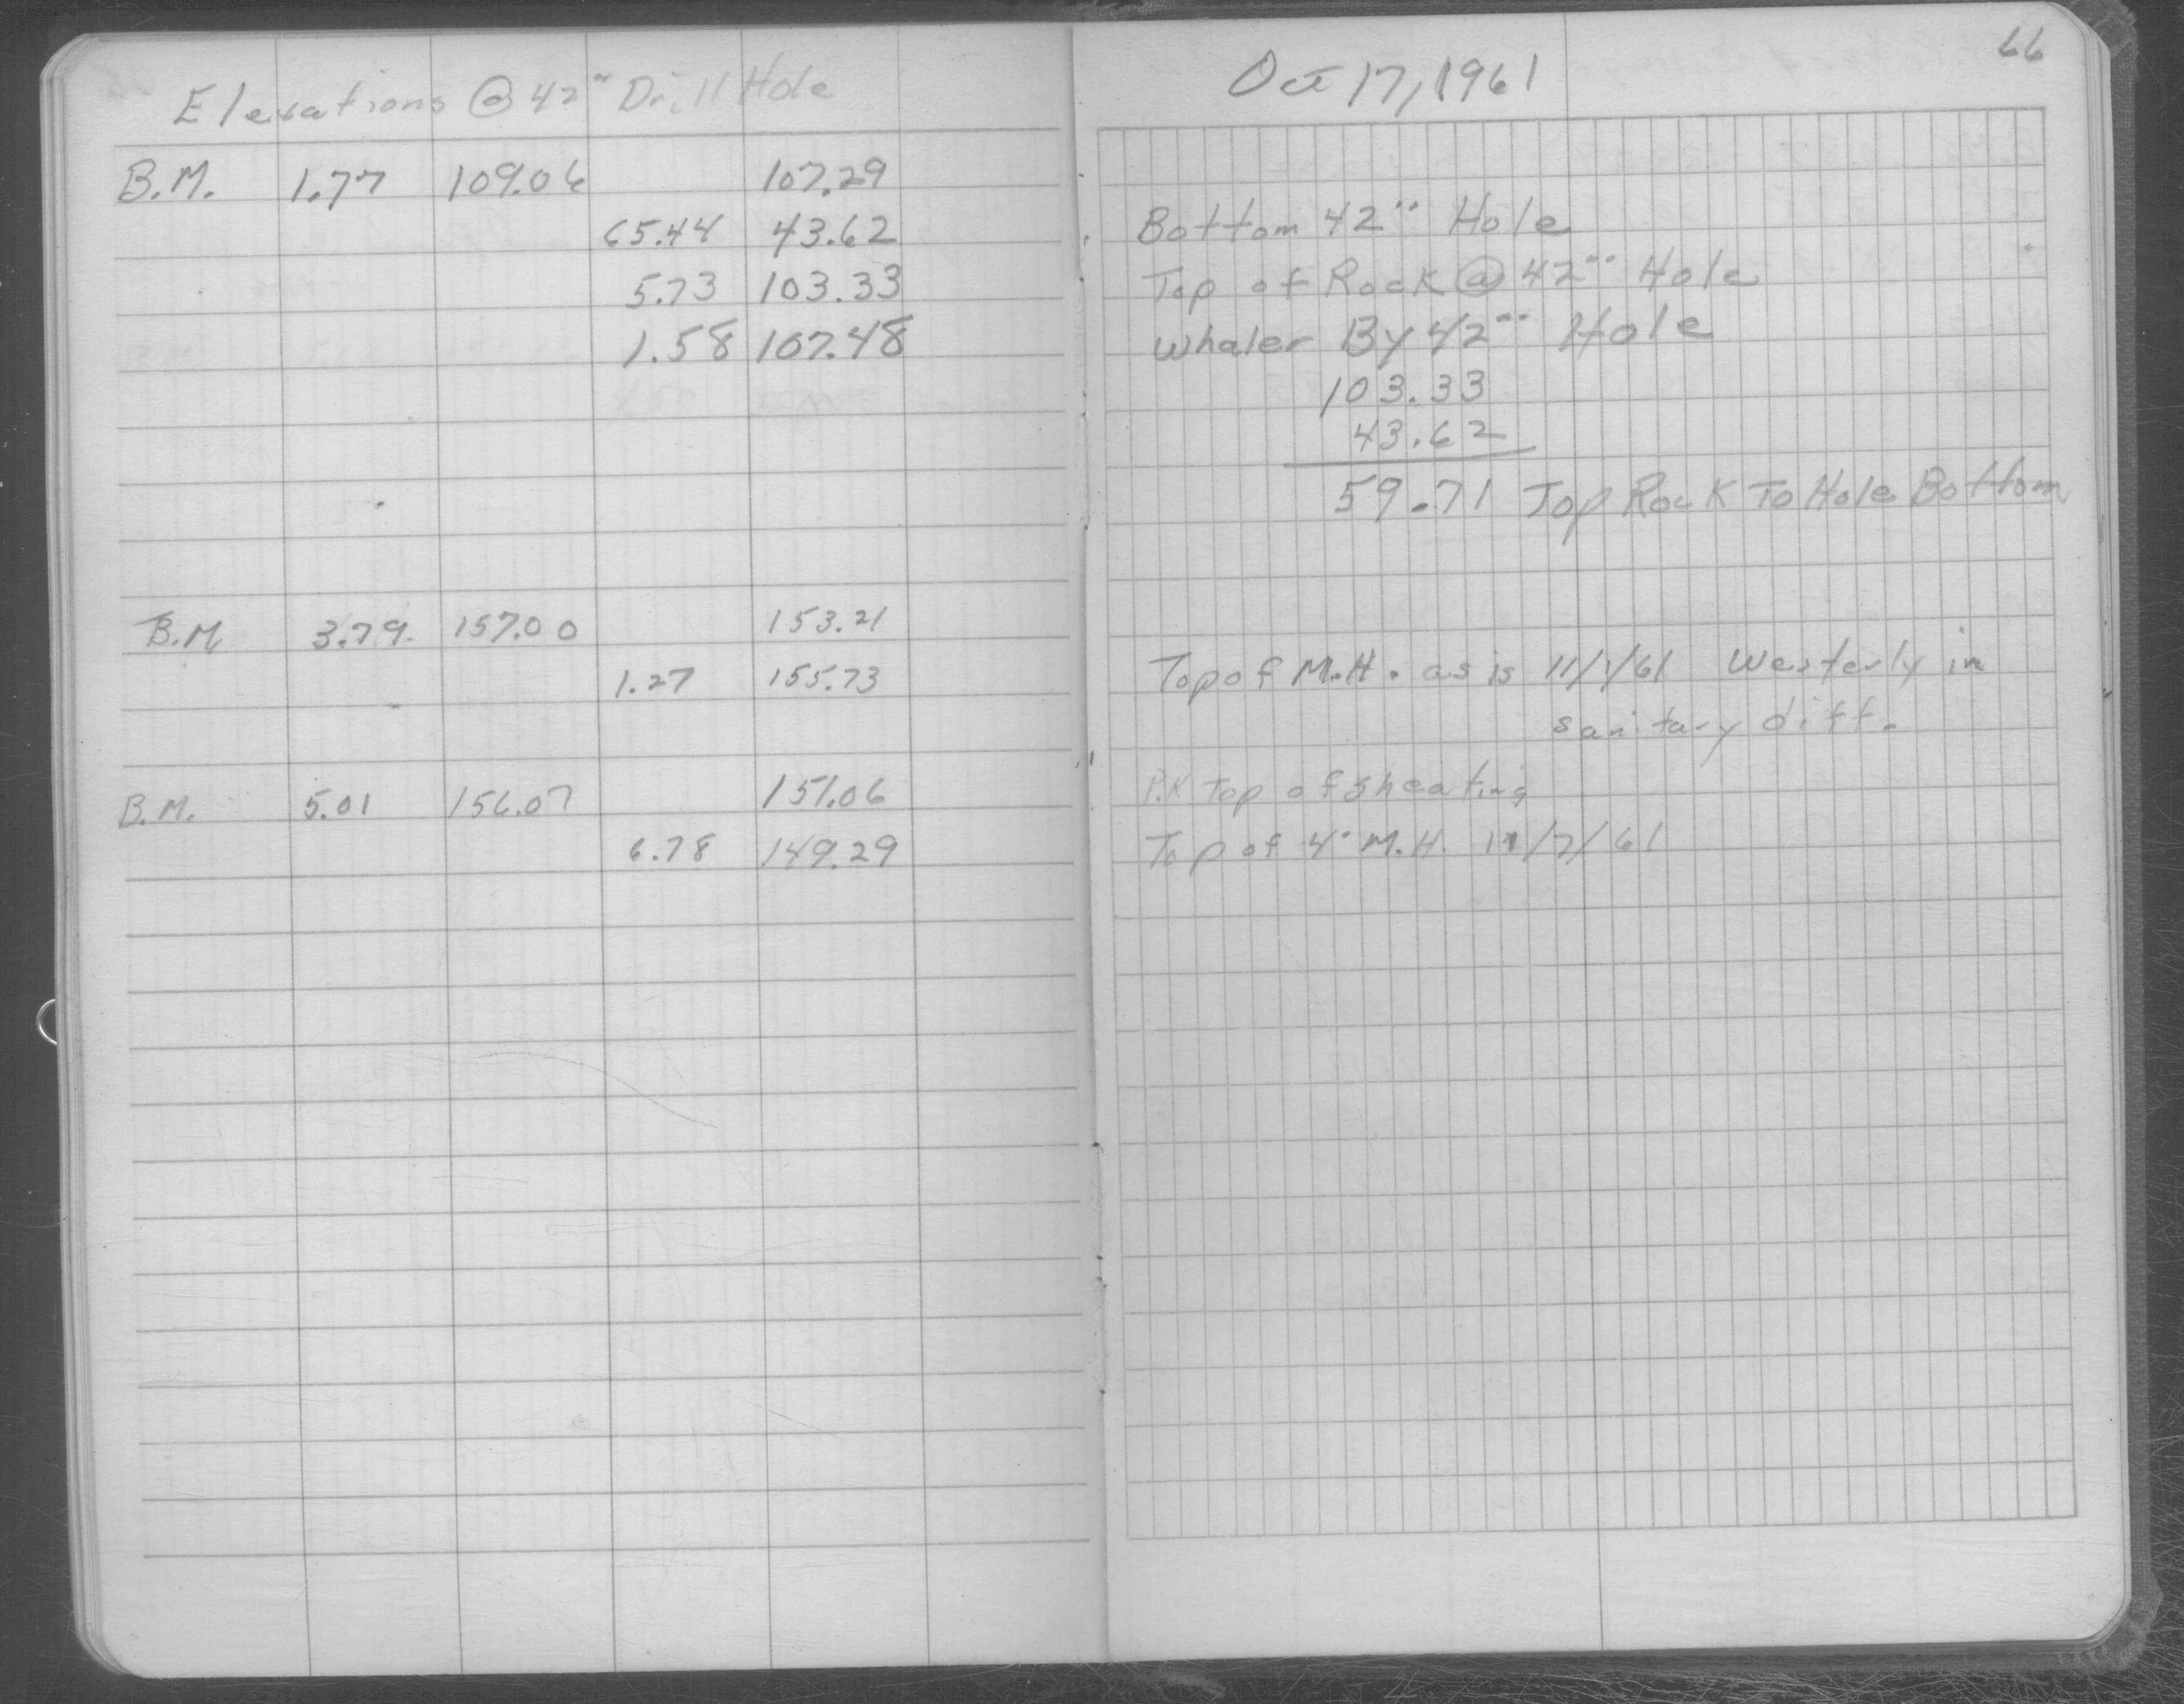 Elevations @ 42" Drill Hole
B.M. 1.77 109.06 107.29
65.44 43.62
5.73 103.33
1.58 107.48
B.M 3.79 157.00 153.21
1.27 155.73
B.M. 5.01 156.07 151.06
6.78 149.29
66
Oct 17, 1961
Bottom 42" Hole
Top of Rock @ 42" Hole
whaler By 42" Hole
103.33
43.62
59.71 Top Rock To Hole Bottom
Top of M.H. as is 11/1/61 Westerly in
sanitary diff.
P.K top of sheating
Top of 4' M.H. 11/7/61